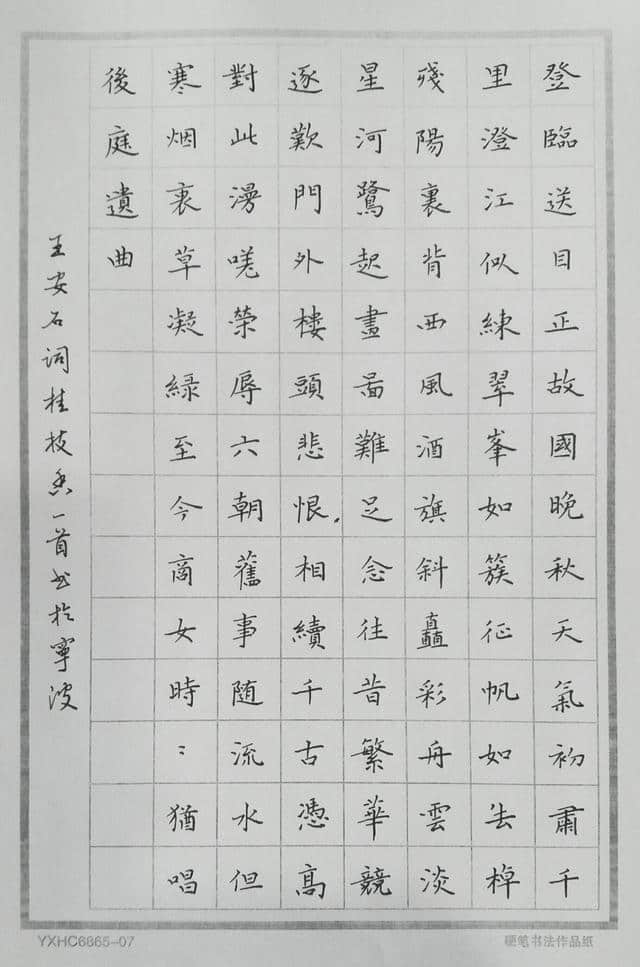 登臨送目正故國晚秋天氣初肅千
里澄江似練翠峯如簇征帆如去棹
殘陽裏背西風酒旗斜矗彩舟雲淡
星河鷺起畫啚難足念往昔繁華競
逐歎門外樓頭悲恨相續千古憑高
對此漫嗟榮辱六朝舊事随流水但
寒烟衰草凝緑至今商女時：猶唱
後庭遺曲
王安石词桂枝香一首书於寧波
YXHC6865-07
硬笔书法作品纸